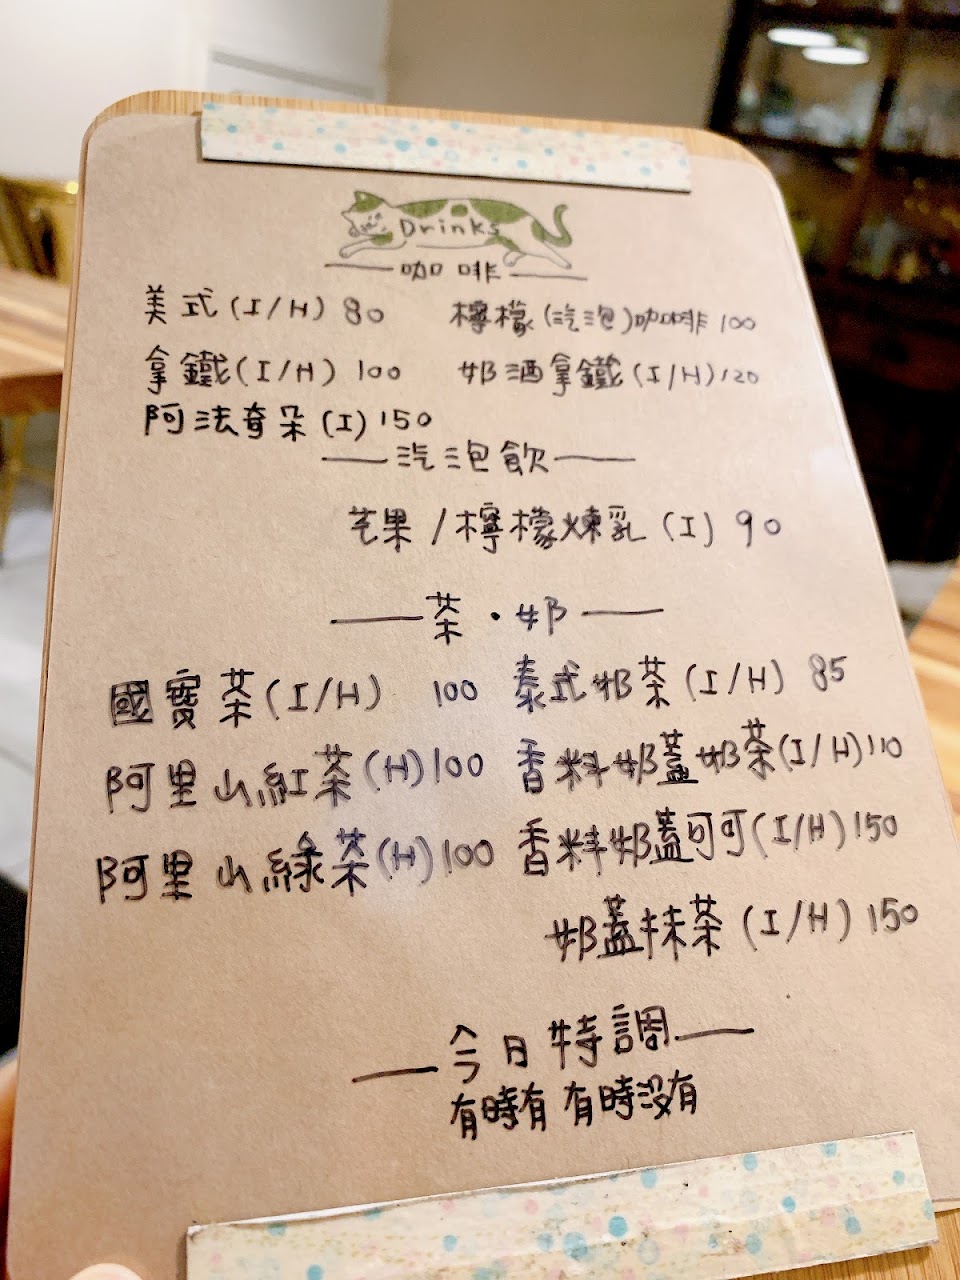 Drinks
咖啡
美式(I/H) 80 檸檬(汽泡)咖啡 100
拿鐵(I/H) 100 奶酒拿鐵(I/H) 120
阿法奇朵(I) 150
汽泡飲
芒果/檸檬煉乳(I) 90
茶・奶
國寶茶(I/H) 100 泰式奶茶(I/H) 85
阿里山紅茶(H) 100 香料奶蓋奶茶(I/H) 110
阿里山綠茶(H) 100 香料奶蓋可可(I/H) 150
奶蓋抹茶(I/H) 150
今日特調
有時有 有時沒有